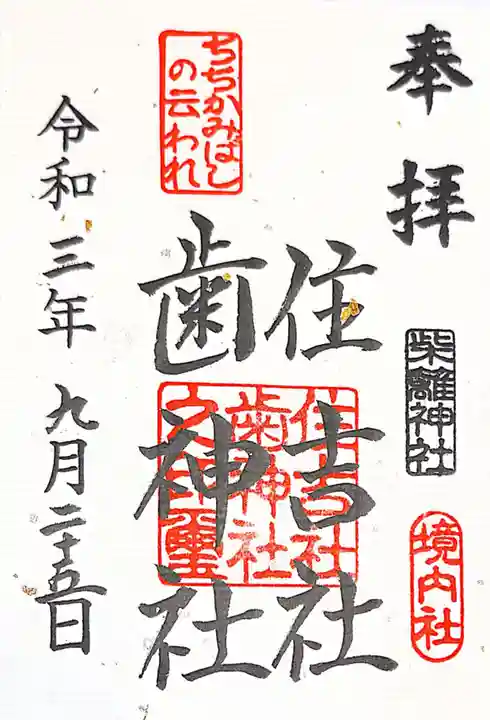 奉拝
柴籬神社
境内社
住吉社
歯神社
住吉社
歯神社
之印璽
ちちかみばし
の云われ
令和三年九月二十五日